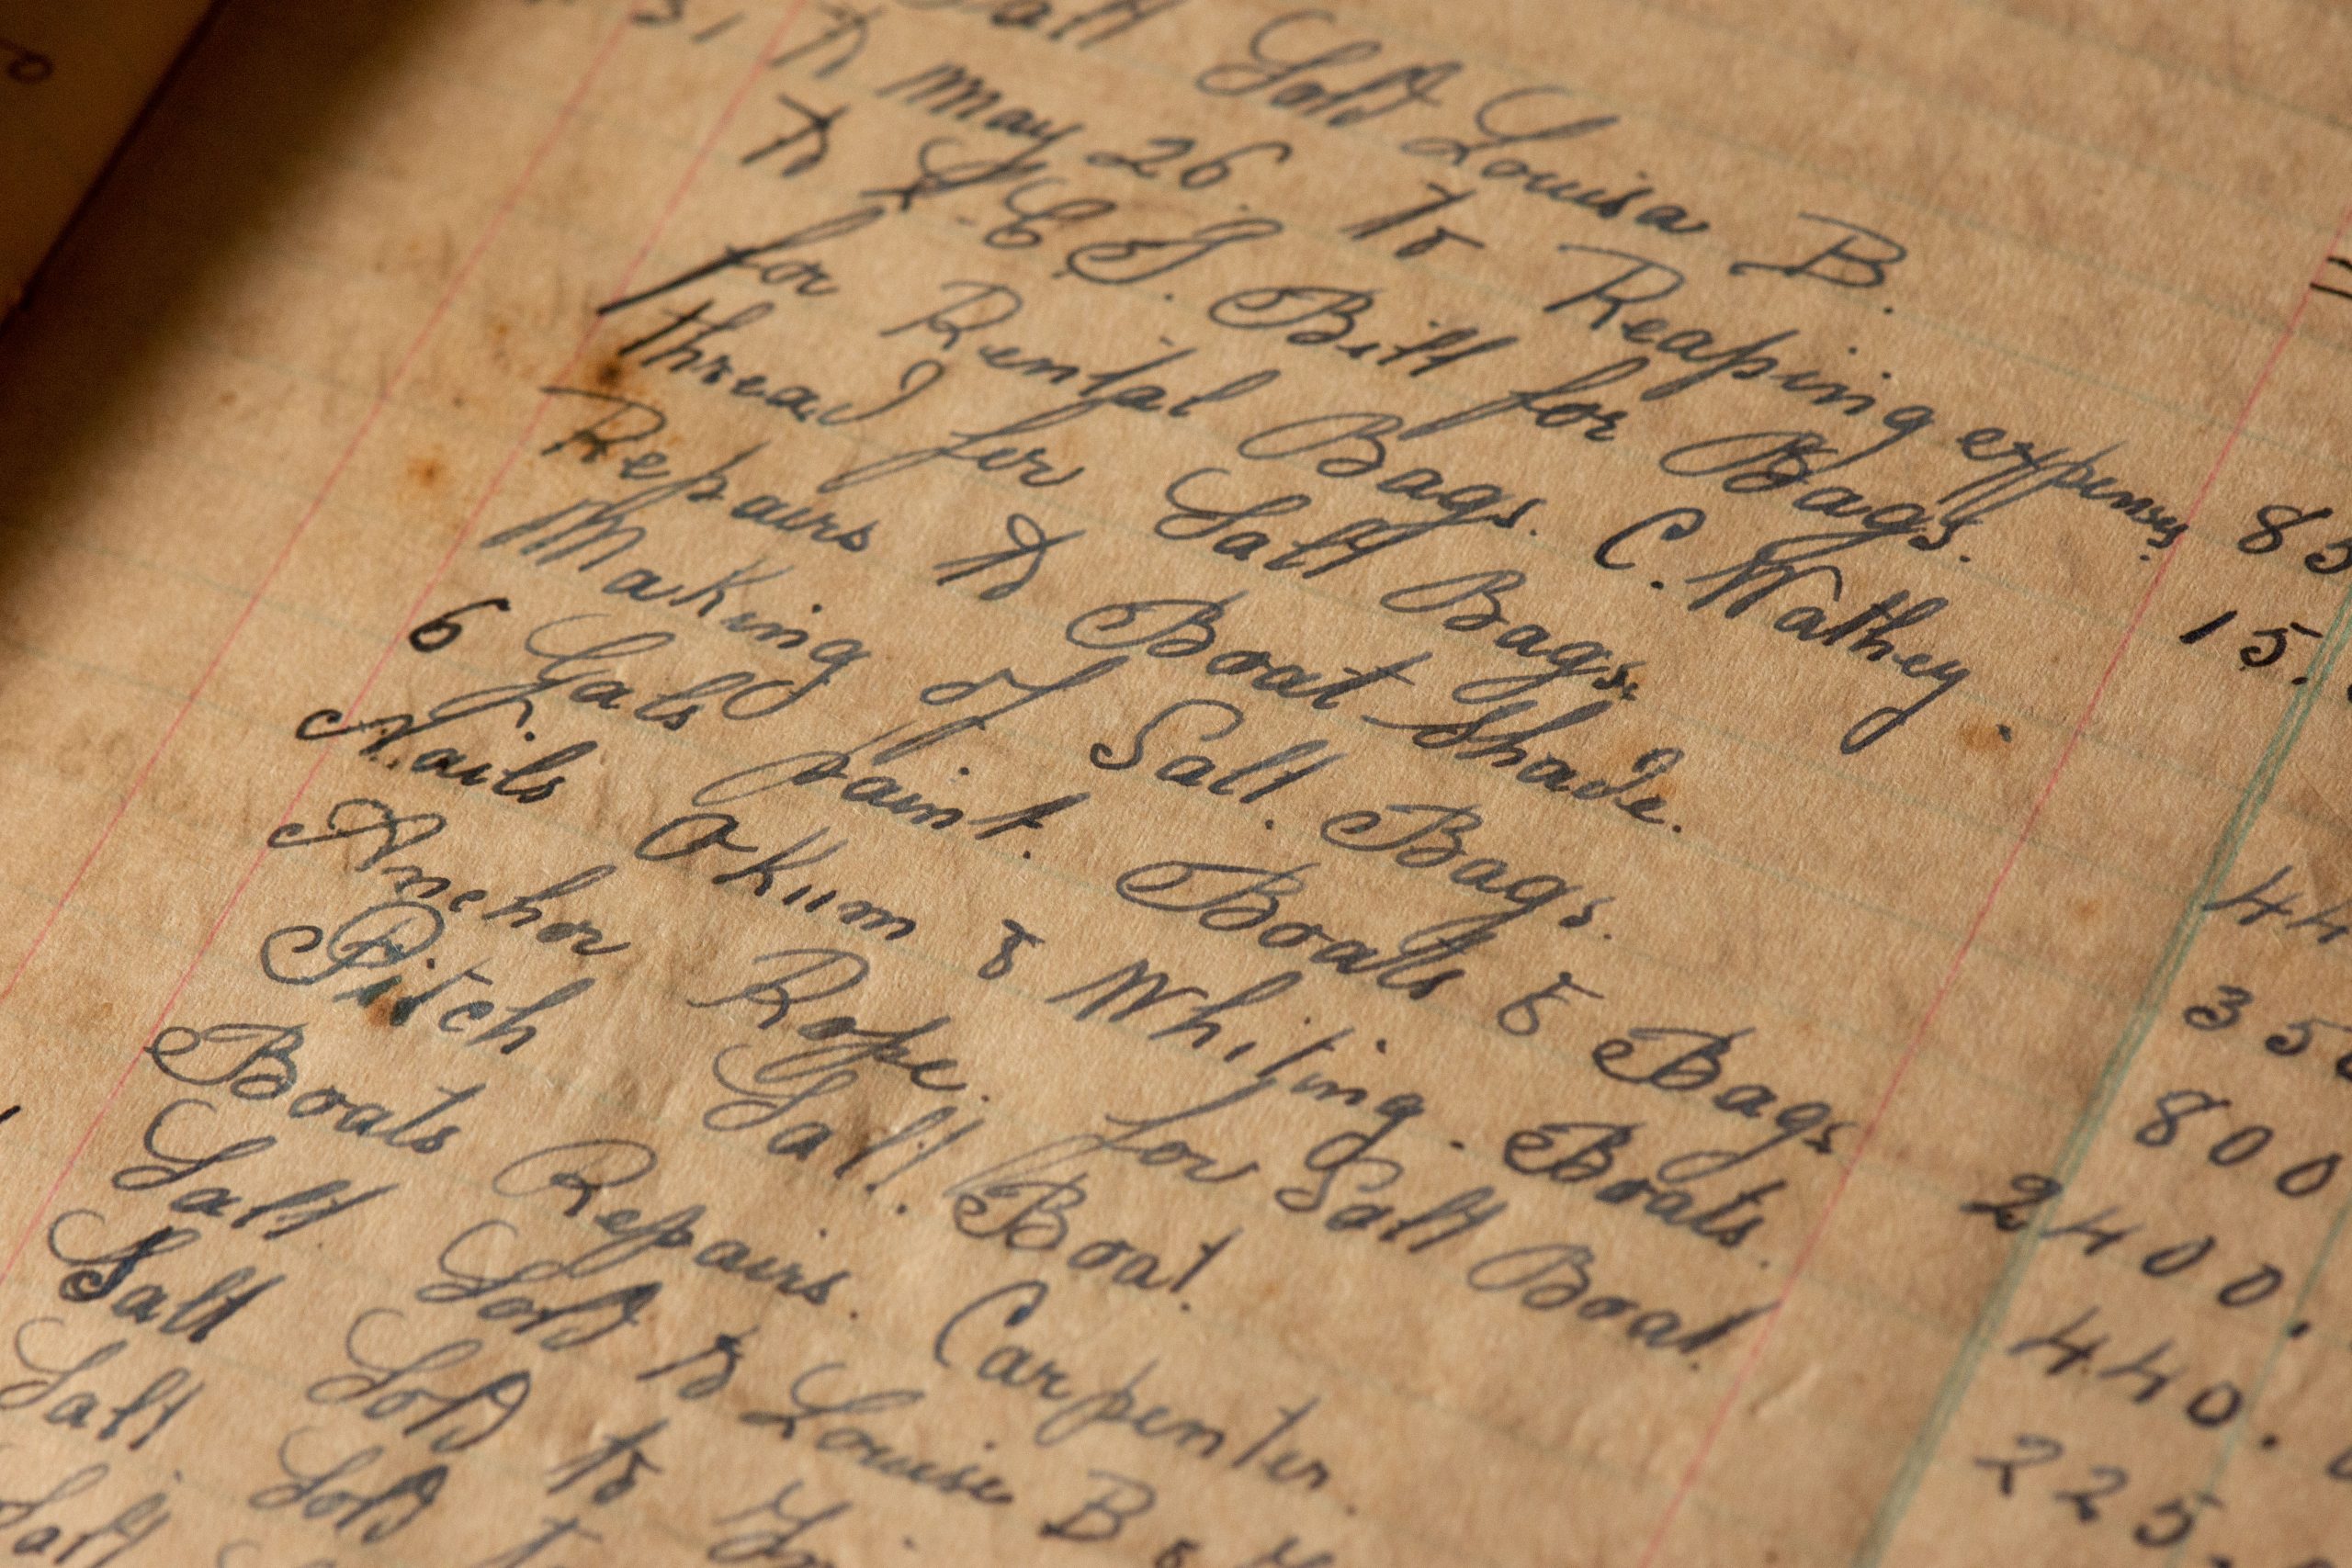 Salt Sold Louisa B.
31 To May 26. To Reaping expenses.
To L. C. G. Bill for Bags. 85
for Rental Bags. C. Wathey. 15.
thread for Salt Bags.
Repairs to Boat Shade.
Making of Salt. Bags. 44
6 Gals paint. Boats & Bags 350
Nails Okum & Whiting. Boats. 800
Anchor Rope. for Salt Boat. 2400.
Pitch Salt. Boat. 440.
Boats Repairs. Carpenter. 225.
Salt Sold to Louise B &
Salt Sold to
Salt Sold
Salt